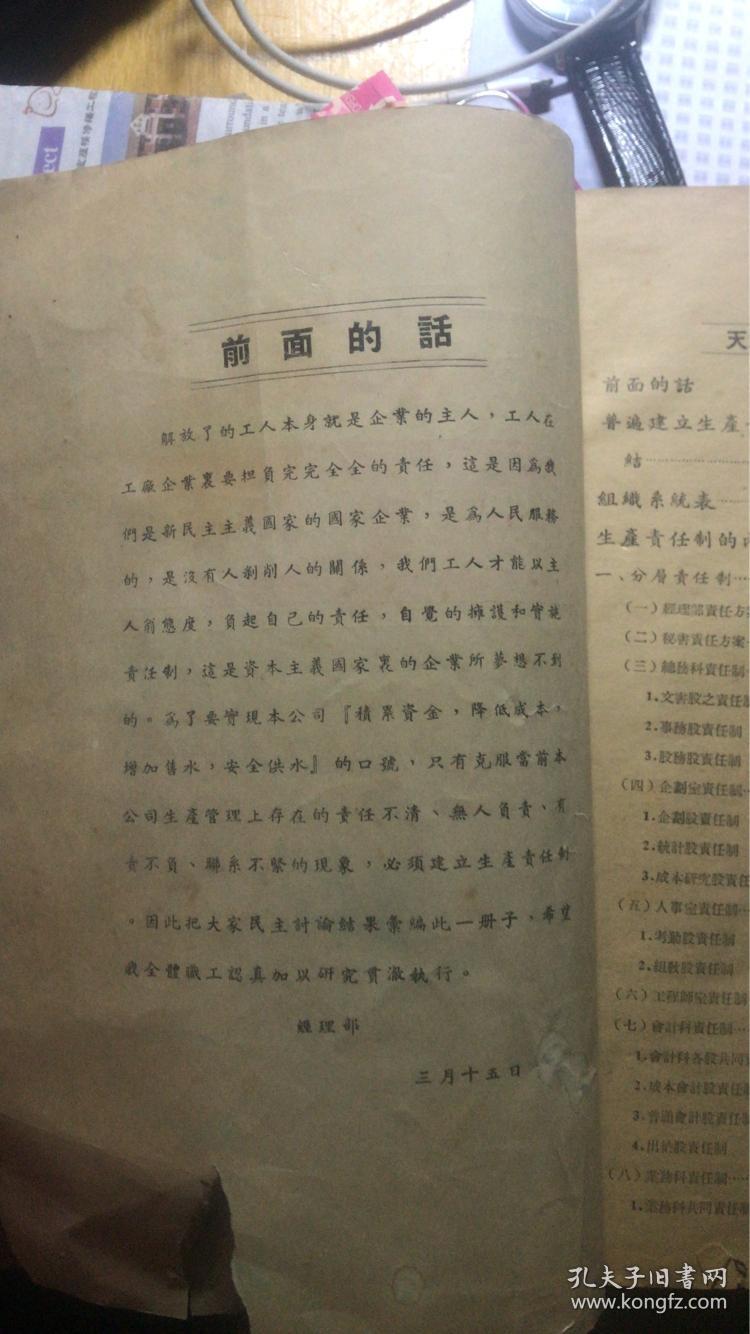 前面的話
解放了的工人本身就是企業的主人，工人在
工廠企業裏要担負完完全全的責任，這是因為我
們是新民主主義國家的國家企業，是為人民服務
的，是沒有人剥削人的關係，我們工人才能以主
人翁態度，負起自己的責任，自覺的擁護和實施
責任制，這是資本主義國家裏的企業所夢想不到
的。為了要實現本公司『積累資金，降低成本，
增加售水，安全供水』的口號，只有克服當前本
公司生產管理上存在的責任不清、無人負責、有
責不負、聯系不緊的現象，必須建立生產責任制
。因此把大家民主討論結果彙編此一册子，希望
我全體職工認真加以研究貫澈執行。
經理部
三月十五日
天
前面的話
普遍建立生產
結
組織系統表
生產責任制的
一、分層責任制
（一）經理部責任方案
（二）秘書責任方案
（三）總務科責任制
1.文書股之責任制
2.事務股責任制
3.股務股責任制
（四）企劃室責任制
1.企劃股責任制
2.統計股責任制
3.成本研究股責任
（五）人事室責任制
1.考勤股責任制
2.組教股責任制
（六）工程師室責任制
（七）會計科責任制
1.會計科各股共同
2.成本會計股責任
3.普通會計股責任
4.出納股責任制
（八）業務科責任制
1.業務科共同責任
ect
孔夫子旧書网
www.kongfz.com